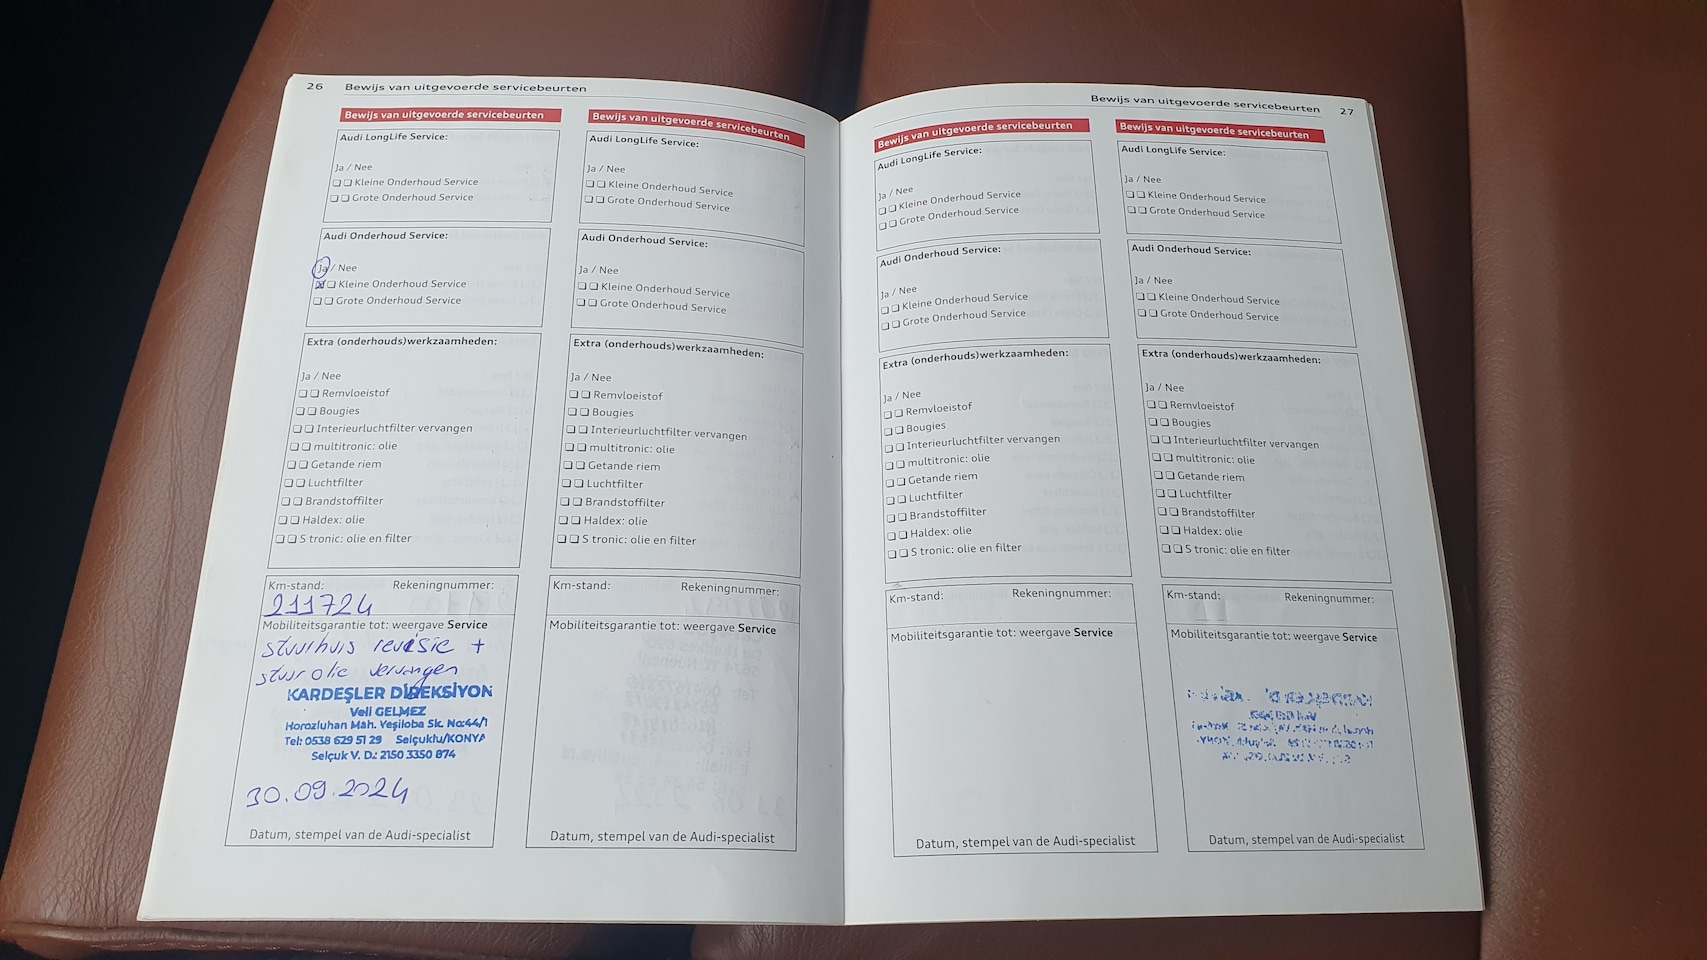 26 Bewijs van uitgevoerde servicebeurten
Bewijs van uitgevoerde servicebeurten
Audi LongLife Service:
Ja / Nee
Kleine Onderhoud Service
Grote Onderhoud Service
Audi Onderhoud Service:
Ja / Nee
Kleine Onderhoud Service
Grote Onderhoud Service
Extra (onderhouds)werkzaamheden:
Ja / Nee
Remvloeistof
Bougies
Interieurluchtfilter vervangen
multitronic: olie
Getande riem
Luchtfilter
Brandstoffilter
Haldex: olie
S tronic: olie en filter
Km-stand: Rekeningnummer:
211724
Mobiliteitsgarantie tot: weergave Service
stuurhuis revisie +
stuurolie vervangen
KARDEŞLER DİREKSİYON
Veli GELMEZ
Horozluhan Mah. Yeşiloba Sk. No:44/1
Tel: 0538 629 51 29 Selçuklu/KONYA
Selçuk V. D.: 2150 3350 874
30.09.2024
Datum, stempel van de Audi-specialist
Bewijs van uitgevoerde servicebeurten
Audi LongLife Service:
Ja / Nee
Kleine Onderhoud Service
Grote Onderhoud Service
Audi Onderhoud Service:
Ja / Nee
Kleine Onderhoud Service
Grote Onderhoud Service
Extra (onderhouds)werkzaamheden:
Ja / Nee
Remvloeistof
Bougies
Interieurluchtfilter vervangen
multitronic: olie
Getande riem
Luchtfilter
Brandstoffilter
Haldex: olie
S tronic: olie en filter
Km-stand: Rekeningnummer:
Mobiliteitsgarantie tot: weergave Service
Datum, stempel van de Audi-specialist
Bewijs van uitgevoerde servicebeurten 27
Bewijs van uitgevoerde servicebeurten
Audi LongLife Service:
Ja / Nee
Kleine Onderhoud Service
Grote Onderhoud Service
Audi Onderhoud Service:
Ja / Nee
Kleine Onderhoud Service
Grote Onderhoud Service
Extra (onderhouds)werkzaamheden:
Ja / Nee
Remvloeistof
Bougies
Interieurluchtfilter vervangen
multitronic: olie
Getande riem
Luchtfilter
Brandstoffilter
Haldex: olie
S tronic: olie en filter
Km-stand: Rekeningnummer:
Mobiliteitsgarantie tot: weergave Service
Datum, stempel van de Audi-specialist
Bewijs van uitgevoerde servicebeurten
Audi LongLife Service:
Ja / Nee
Kleine Onderhoud Service
Grote Onderhoud Service
Audi Onderhoud Service:
Ja / Nee
Kleine Onderhoud Service
Grote Onderhoud Service
Extra (onderhouds)werkzaamheden:
Ja / Nee
Remvloeistof
Bougies
Interieurluchtfilter vervangen
multitronic: olie
Getande riem
Luchtfilter
Brandstoffilter
Haldex: olie
S tronic: olie en filter
Km-stand: Rekeningnummer:
Mobiliteitsgarantie tot: weergave Service
Datum, stempel van de Audi-specialist